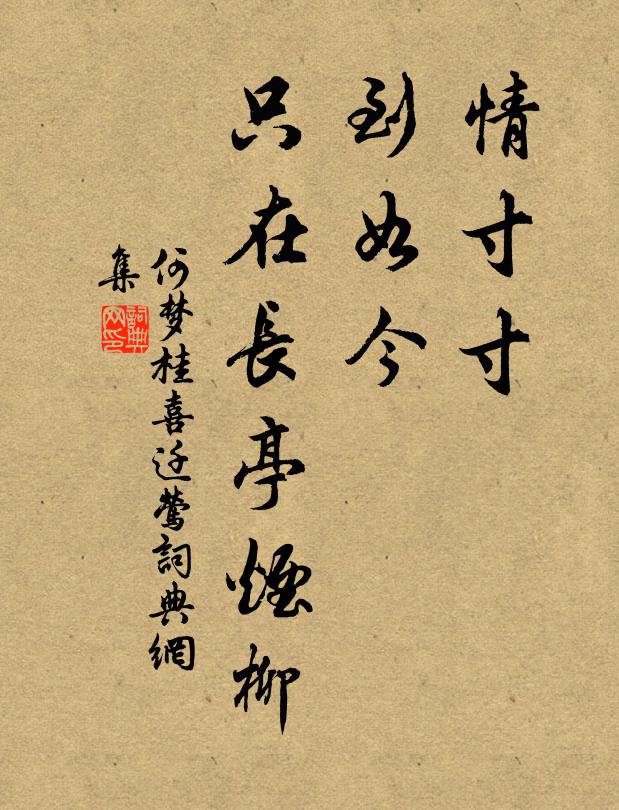 情寸寸
到如今
只在長亭煙柳
何梦桂喜迁莺詞典網
集
詞典
网印